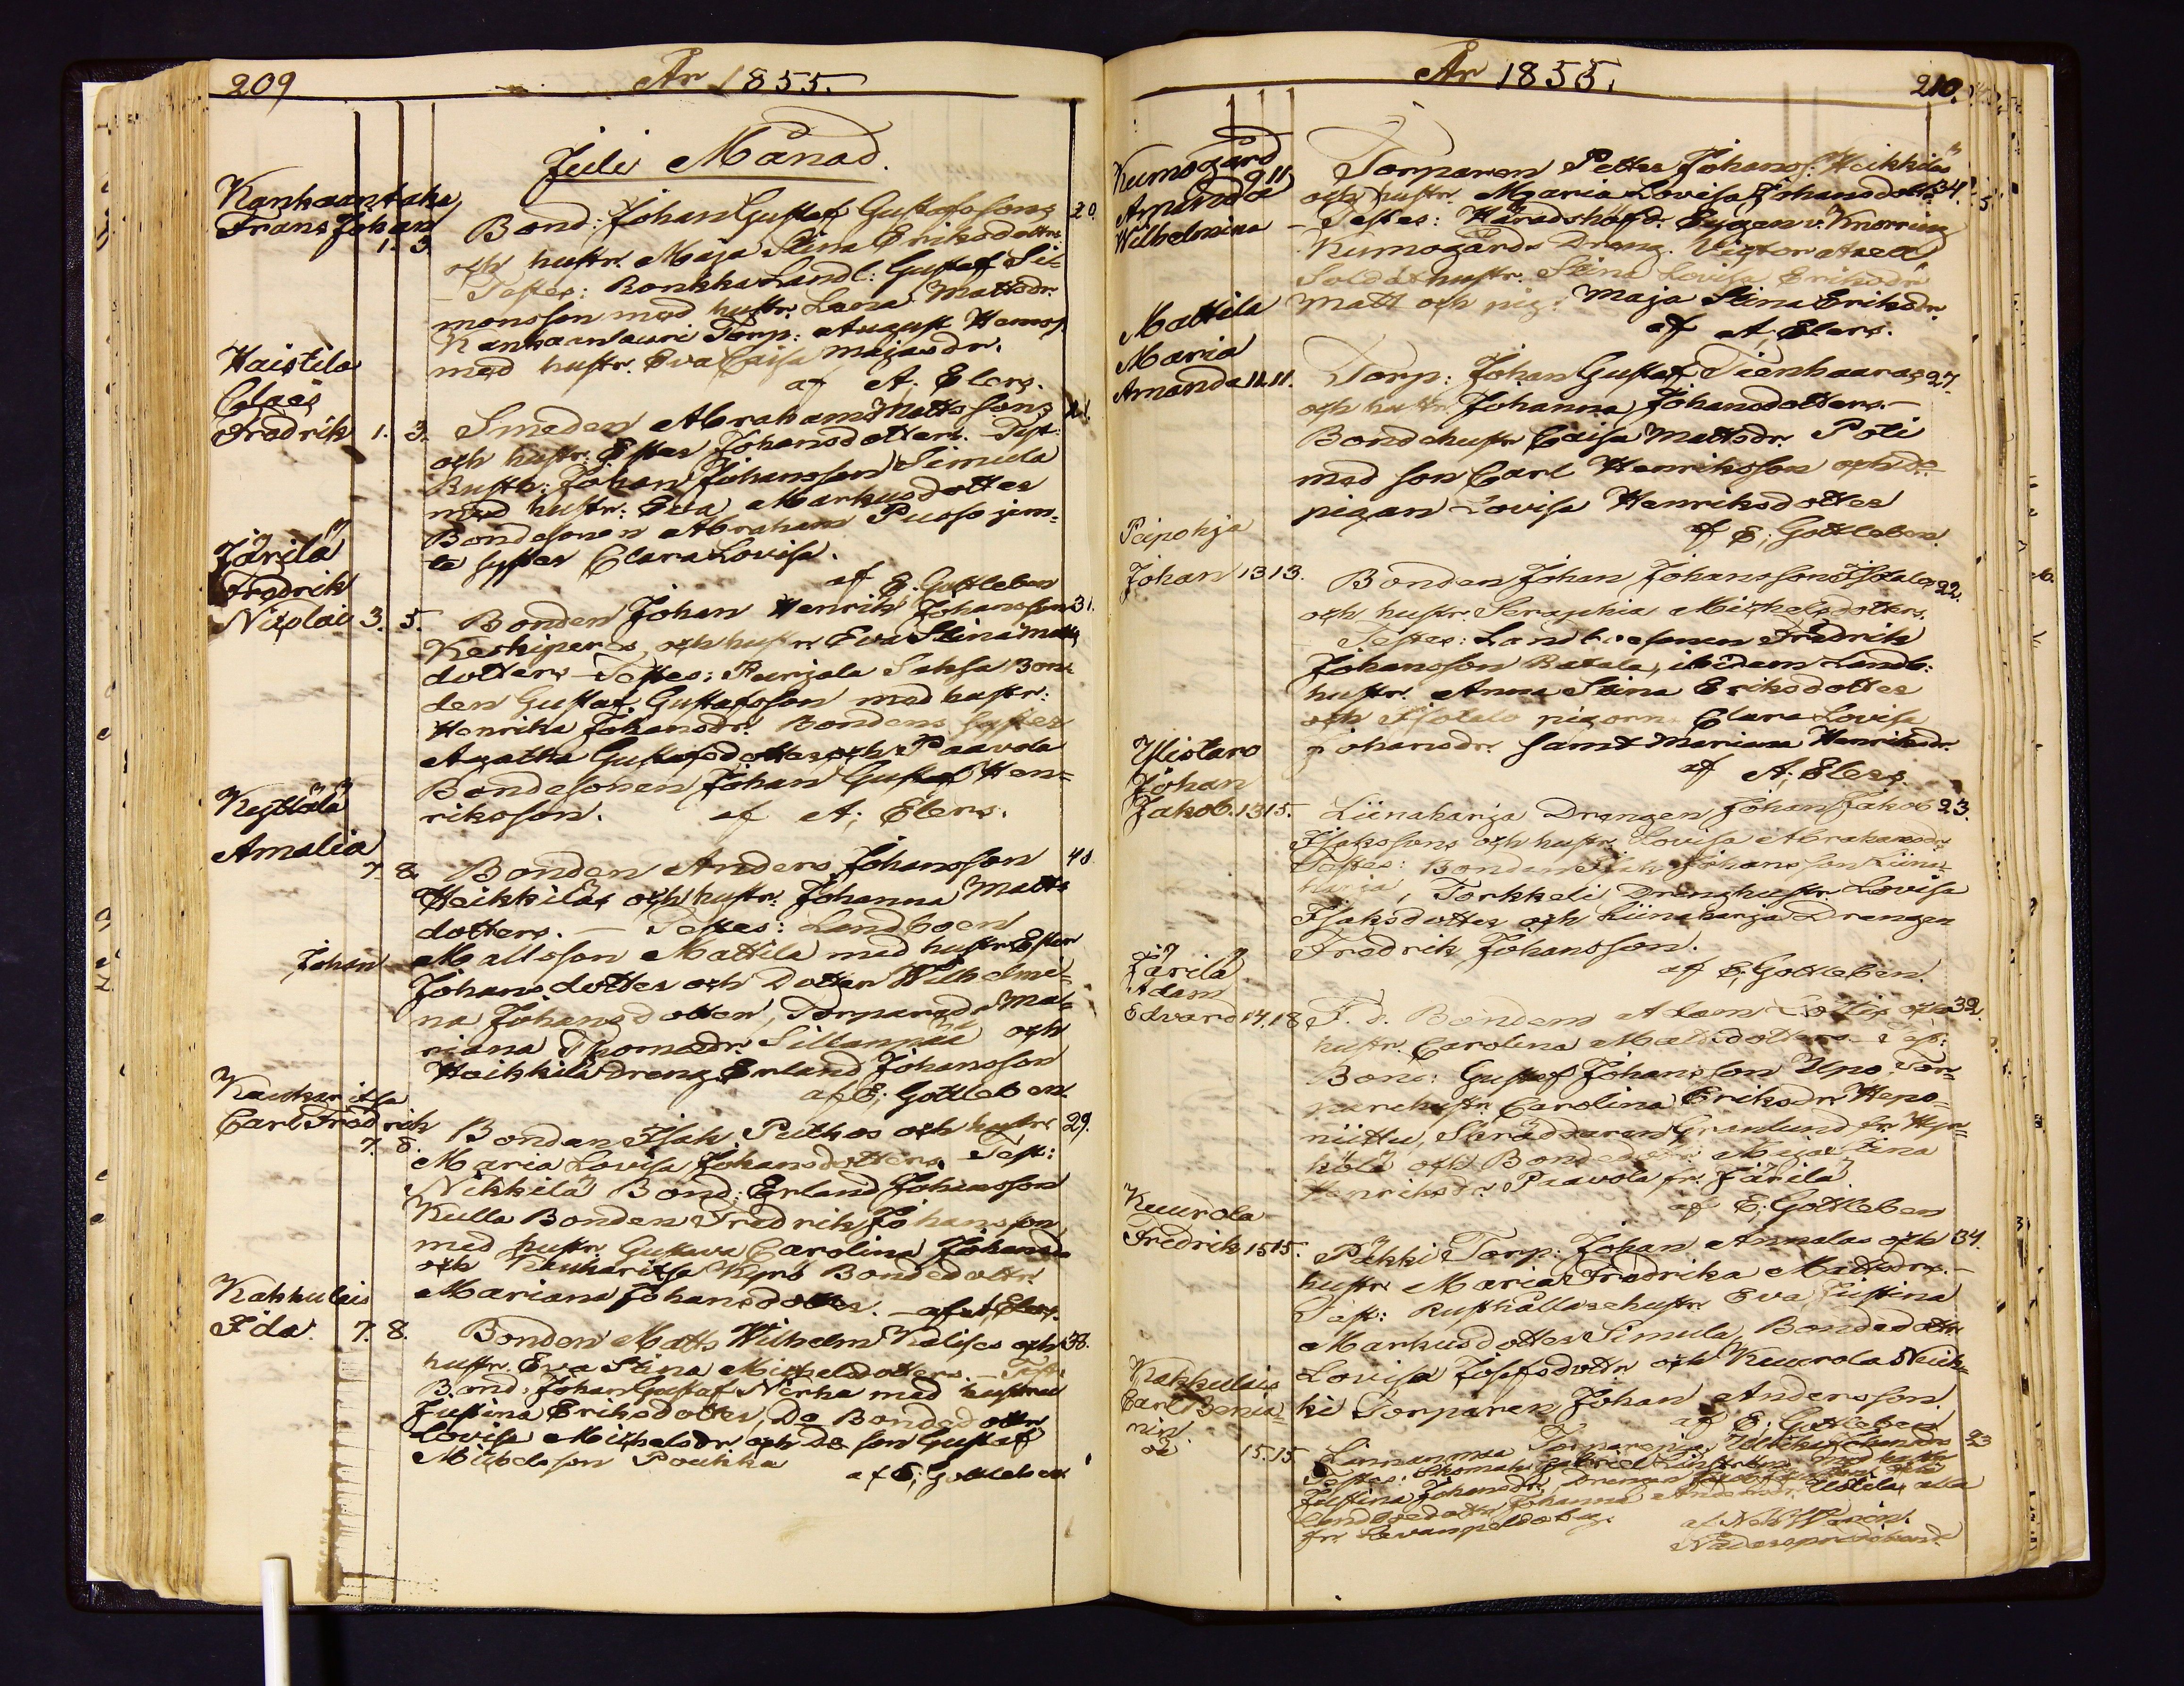 209
År 1855.
Juli Månad.
Kanhaantaka
Frans Johan
1. 3.
Bond: Johan Gustaf Gustafssons 20.
och hustr. Maja Stina Eriksdotters
- Testes: Ronkka Landb: Gustaf Si-
monsson med hustr. Lena Mattsdr.
Kanhaanlauri Torp: August Hermosf
med hustr. Eva Caisa Majasdr.
af A. Elers.
Haistila
Claës
Fredrik 1. 3.
Smeden Abraham Mattssons 21.
och hustr. Ester Johansdotters. Test:
Rusth: Johan Johansson Simula
med hustr: Eva Markusdotter
Bondesonen Abraham Pusso jem-
te syster Clara Lovisa.
af E. Gottleben
Järilä
Fredrik
Nicolai 3. 5.
Bonden Johan Henrik Johansson 31.
och hustr. Eva Stina Matts
dotters - Testes: Saksa Bon-
den Gustaf Gustafsson med hustr:
Henrika Johansdr. Bondens syster
Agatha Gustafsdotter och Paavola
Bondesonen Johan Gustaf Hen-
riksson. af A; Elers.
Kyttälä
Amalia
7. 8.
Bonden Anders Johansson 40
Heikkiläs och hustr. Johanna Matts
dotters. - Testes: Landboen
Johan Mattsson Mattila med hustr. Ester
Johansdotter och Dotter Wilhelmi-
na Johansdotter, Torparedr Ma-
riana Thomasdr. Sillanpää och
Heikkilä Dreng Erland Johansson
af E; Gottleben.
Kaukaritsa
Carl Fredrik
7. 8.
Bonden Isak Puthos och hustr 29.
Maria Lovisa Johansdotters. Test:
Nikkilä Bond: Erland Johansson
Kulla Bonden Fredrik Johansson
med hustr. Gustava Carolina Johansd
och Kaukaritsa Kyrö Bondedottr.
Mariana Johansdotter. - af A; Elers.
Kakkulais
Ida. 7. 8.
Bonden Matts Wilhelm och 38.
hustr. Eva Stina Mickelsdotters. - Test:
Bond: Johan Gustaf Nirha med hustrun
Justina Eriksdotter, Do Bondedottr
Lovisa Mickelsdr och do son Gustaf
Mickelsson Poukka
af E; Gottleben
År 1855.
210.
Kumogård
Amanda 9.11.
Wilhelmina
Torparen Petter Johansf. Heikkiläs
och hustr. Maria Lovisa Johansdotters 34.
- Testes: Häradshöfd. Eugen v. Knorring
Kumogårds Dreng. Victor Axel
Soldathustr. Stina Lovisa Eriksdr
Matt och pig: Maja Stina Eriksdr.
af A; Elers.
Mattila
Maria
Amanda 11.11.
Torp: Johan Gustaf Tienhaaras 27.
och hustr. Johanna Johansdotters.-
Bondehustr. Caisa Mattsdr. Poti
med son Carl Henriksson och do
pigan Lovisa Henriksdotter
af E; Gottleben.
Peipohja
Johan 13 13.
Bonden Johan Johanssons Isotalo 22.
och hustr. Seraphia Michelsdotters.
- Testes: Landboesonen Fredrik
Johansson Ratala, ibidem Landb:
hustr. Anna Stina Eriksdotter
och Isotalo pigorna Clara Lovisa
Johansdr. samt Mariana Henriksdr.
af A; Elers.
Ylistaro
Johan
Jakob. 13 15.
Liinaharja Drengen Johan Jakob 23.
Isakssons och hustr. Lovisa Abrahamsdr.
Testes: Bonden Isak Johansson Liina-
harja, Torkkeli Drenghustr. Lovisa
Isaksdotter och Liinaharja Drengen
Fredrik Johansson.
af E; Gottleben.
Järilä
Adam
Edvard 14.18
F. d. Bondens Adam och 32.
hustr. Carolina Mattsdotters - Test:
Bond: Gustaf Johansson Upo, Tor-
parehustr. Carolina Eriksdr. Hepo-
niittu, Skräddaren Granlund fr. Hyr-
kölä och Bondedottr. Maja Stina
Henriksdr. Paavola fr. Järilä.
af E; Gottleben
Kuurola
Fredrik 15 15.
Pukki Torp: Johan Annalas och 34.
hustr. Maria Fredrika Mattsdrs. -
Test: Rusthållarehustr. Eva Justina
Markusdotter Simula, Bondedottr
Lovisa Josefsdottr och Kuurola Nuik-
ki Torparen Johan Andersson.
af E. Gottleben
Kakkulais
Carl Benja-
min
oä 15.15.
Linnanmaa Torparepig. Ulrika Johansdrs 23
Testes: Gabriel med hustr
Justina Johansdr, Drengen
Landboedottr Johanna Andersdr. Uotila, alla
fr. Levanpeldo by.
af
Nådaårspredikant.